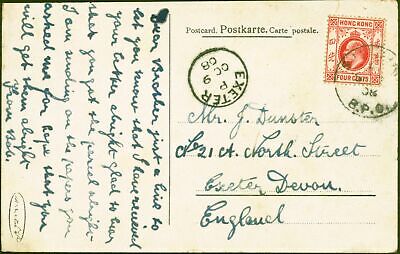 Postcard. Postkarte. Carte postale.
HONG KONG
FOUR CENTS
B.P.O.
EXETER
P
9
OC
08
Dear Brother just a line to
let you know that I have received
your letter alright glad to hear
that you got the parcel alright
I am sending on the papers you
asked me for hope that you
will get them alright
Mr. G. Dunster
21 A. North. Street
Exeter Devon.
England